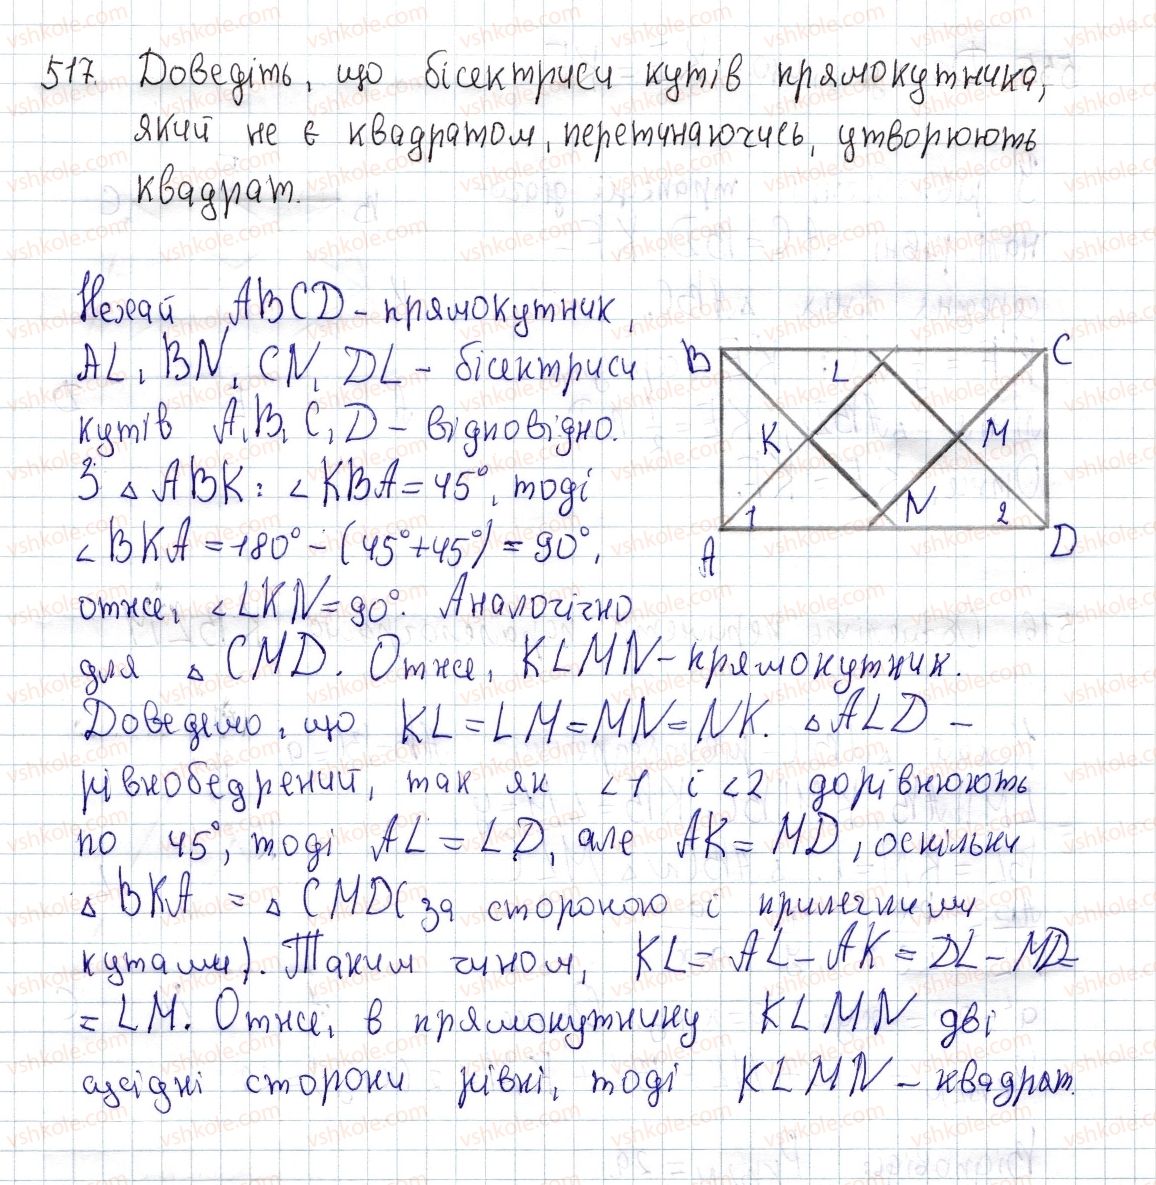 517. Доведіть, що бісектриси кутів прямокутника,
який не є квадратом, перетинаючись, утворюють
квадрат.
Нехай ABCD - прямокутник,
AL, BN, CN, DL - бісектриси
кутів A, B, C, D - відповідно.
З △ ABK: ∠KBA = 45°, тоді
∠BKA = 180° - (45° + 45°) = 90°,
отже, ∠LKN = 90°. Аналогічно
для △ CMD. Отже, KLMN - прямокутник.
Доведемо, що KL = LM = MN = NK. △ ALD -
рівнобедрений, так як ∠1 і ∠2 дорівнюють
по 45°, тоді AL = LD, але AK = MD, оскільки
△ BKA = △ CMD (за стороною і прилеглими
кутами). Таким чином, KL = AL - AK = DL - MD =
= LM. Отже, в прямокутнику KLMN дві
сусідні сторони рівні, тоді KLMN - квадрат.
B
C
L
K
M
N
1
2
A
D
vshkole.com